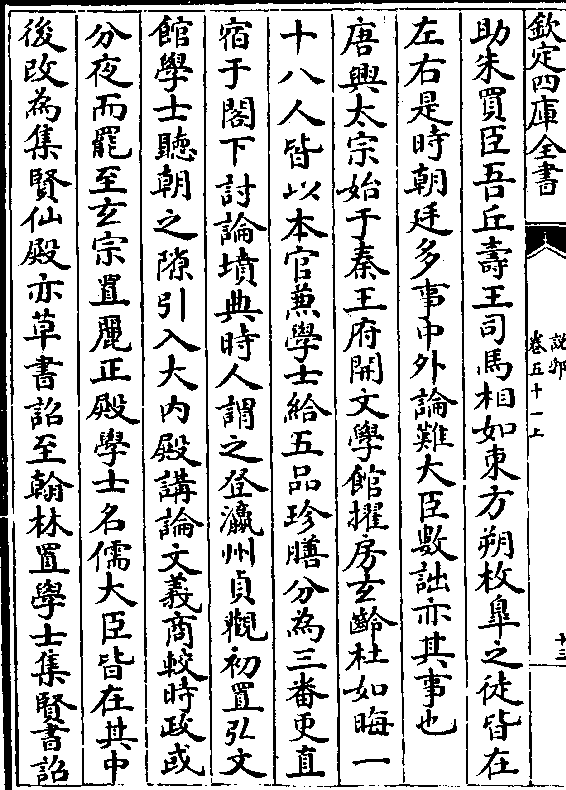 欽定四庫全書
說郛
卷五十一上
十三
助朱買臣吾丘壽王司馬相如東方朔枚臯之徒皆在
左右是時朝廷多事中外論難大臣數詘亦其事也
唐興太宗始于秦王府開文學館擢房玄齡杜如晦一
十八人皆以本官兼學士給五品珍膳分為三番更直
宿于閣下討論墳典時人謂之登瀛州貞觀初置弘文
館學士聽朝之隙引入大内殿講論文義商較時政或
分夜而罷至玄宗置麗正殿學士名儒大臣皆在其中
後改為集賢仙殿亦草書詔至翰林置學士集賢書詔